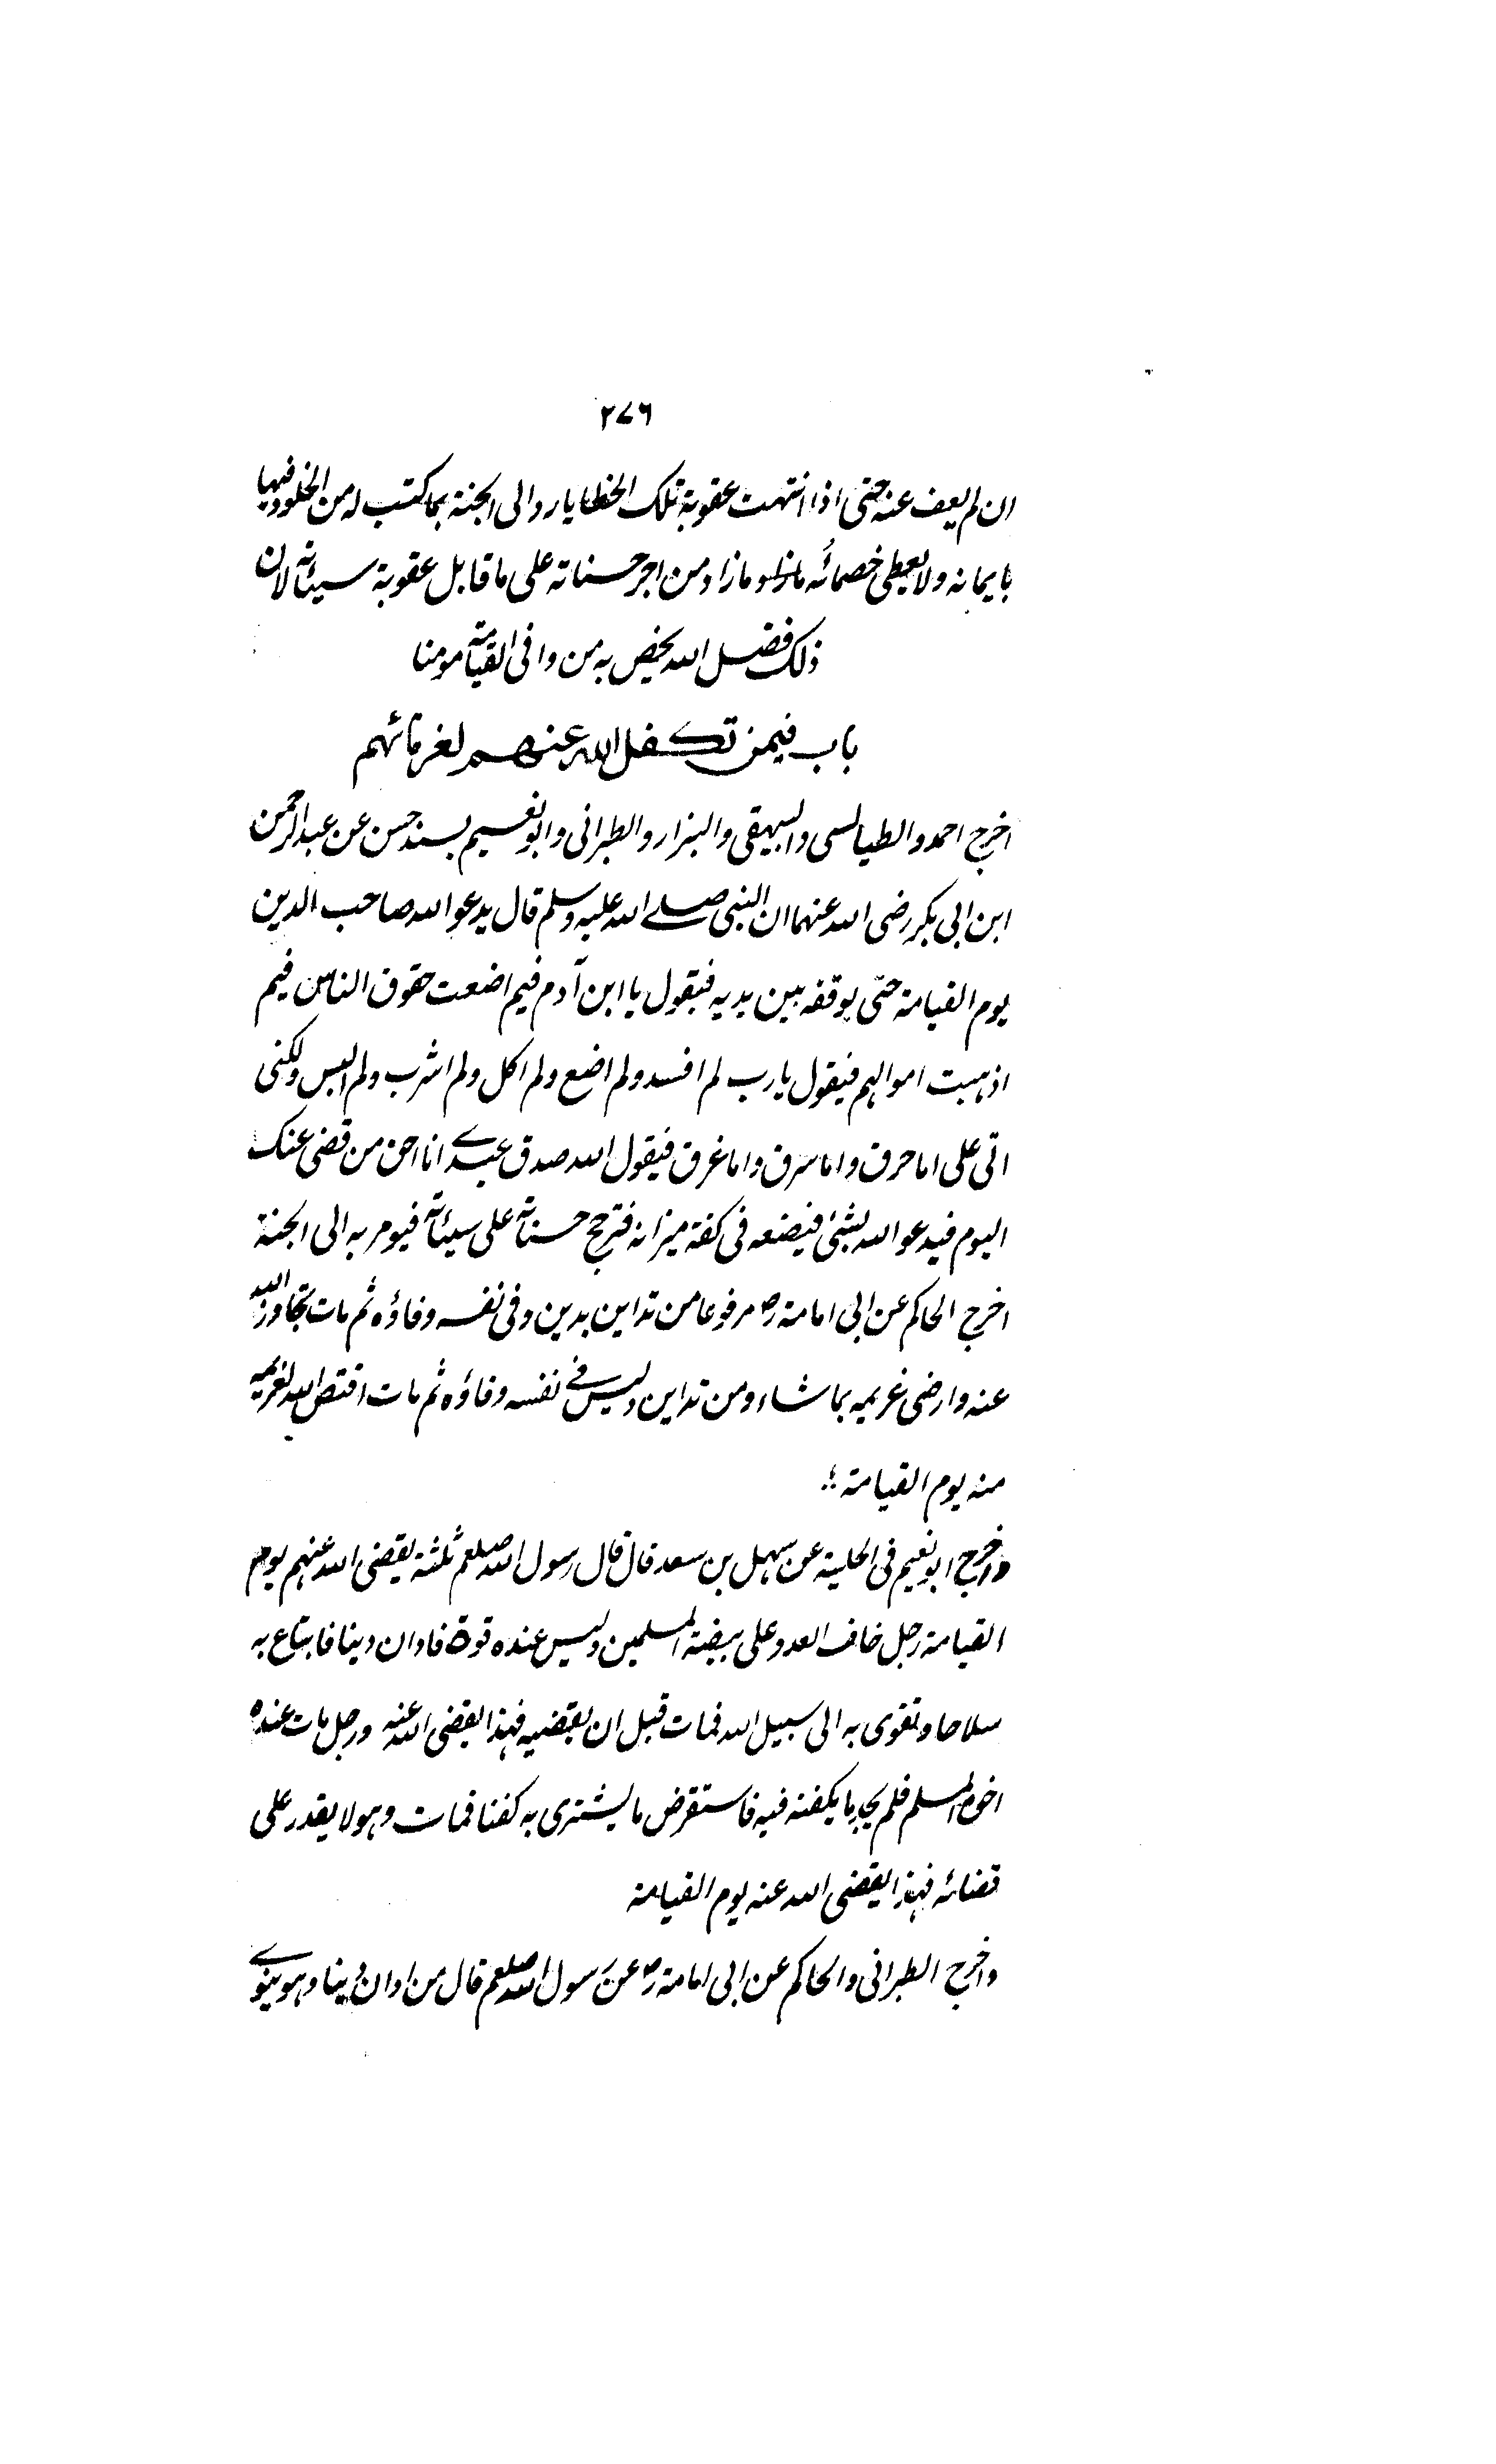 ٢٧٦
ان لم يعف عنه حتى اذا انتهت عقوبة تلك الخطايا رد الى الجنة بما كتب له من الخلود فيها
بايمانه ولا يعطى خصمائه ما زاد من اجر حسناته على ما قابل عقوبة سيئاته لان
ذلك فضل الله يخص به من وافى القيامة مومنا
باب فيمن تكفل الله عنهم لغرمائهم
اخرج احمد والطيالسى والبيهقى والبزار والطبرانى وابو نعيم بسند حسن عن عبد الرحمن
ابن ابى بكر رضى الله عنهما ان النبى صلے الله عليه وسلم قال يدعو الله صاحب الدين
يوم القيامة حتى يوقفه بين يديه فيقول يا ابن آدم فيم اضعت حقوق الناس فيم
اذهبت اموالهم فيقول يارب لم افسد ولم اضع ولم اكل ولم اشرب ولم البس ولكنى
اتى على اما حرق واما سرق واما غرق فيقول الله صدق عبدے انا احق من قضى عنك
اليوم فيدعو الله بشئ فيضعه فى كفة ميزانه فترجح حسناته على سيئاته فيومر به الى الجنة
اخرج الحاكم عن ابى امامة رض مرفوعا من تداين بدين وفى نفسه وفاؤه ثم مات تجاوز الله
عنه وارضى غريمه بما شاء ومن تداين وليس فے نفسه وفاؤه ثم مات اقتص الله لغريمه
منه يوم القيامة ؛
واخرج ابو نعيم فى الحلية عن سهل بن سعد قال قال رسول الله صلعم ثلثة يقضى الله عنهم يوم
القيامة رجل خاف العدو على بيضة المسلمين وليس عنده قوة فادان دينا فابتاع به
سلاحا وتقوى به الى سبيل الله فمات قبل ان يقضيه فهذا يقضى الله عنه ورجل مات عنده
اخوه المسلم فلم يجد ما يكفنه فيه فاستقرض ما يشترى به كفنا فمات وهو لا يقدر على
قضائه فهذا يقضى الله عنه يوم القيامة
واخرج الطبرانى والحاكم عن ابى امامة رض عن رسول الله صلعم قال من ادان دينا وهو ينوے